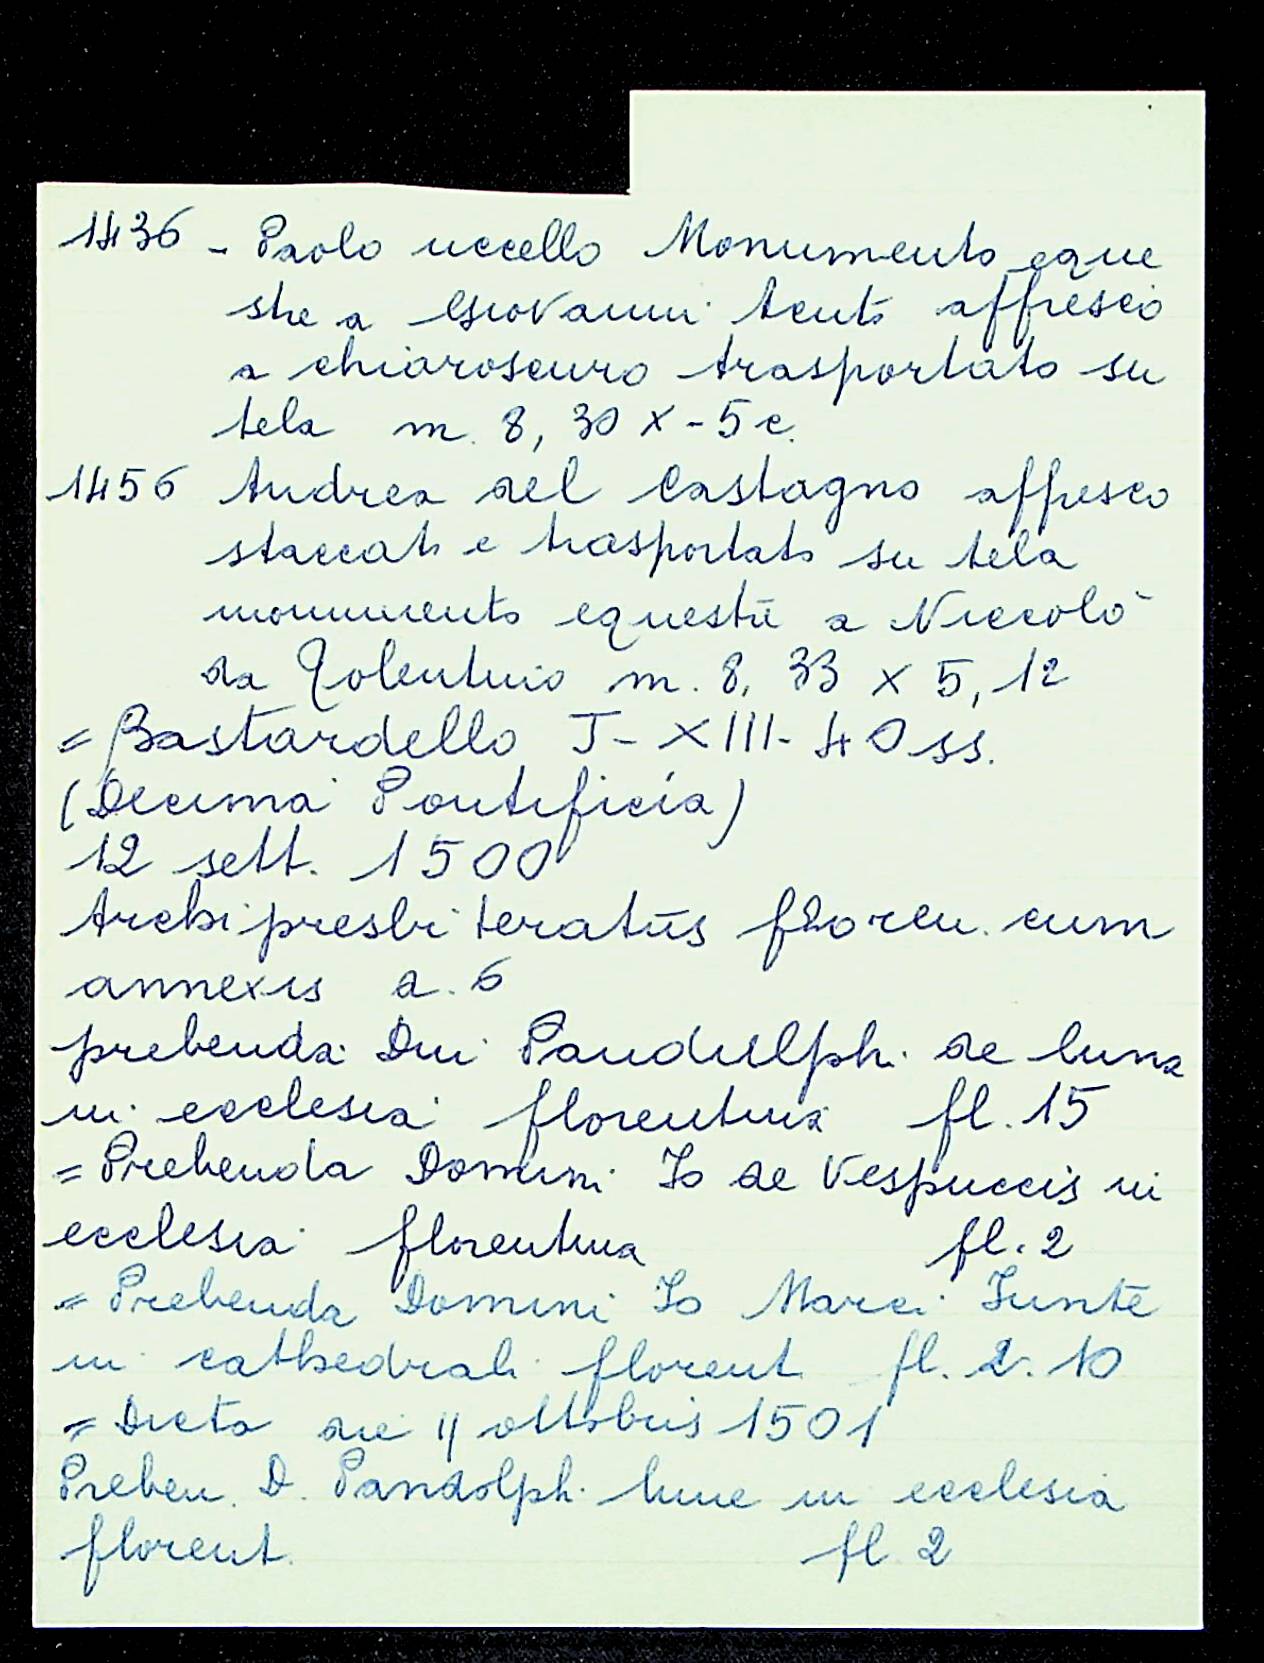 1436 - Paolo uccello Monumento eque
stre a Giovanni Acuto affresco
a chiaroscuro trasportato su
tela m. 8, 30 x - 5 c.
1456 Andrea del Castagno affresco
staccato e trasportato su tela
monumento equestre a Niccolò
da Tolentino m. 8, 33 x 5, 12
= Bastardello J - XIII - 40 ss.
(Decima Pontificia)
12 sett. 1500
Archipresbiteratus floren. cum
annexis a. 6
prebenda Dni Pandulph. de luna
in ecclesia florentina fl. 15
= Prebenda Domini Io de Vespuccis in
ecclesia florentina fl. 2
= Prebenda Domini Io Marci Iunte
in cathedrali florent. fl. 2. 10
= Dicta die 11 ottobris 1501
Preben. D. Pandolph. lune in ecclesia
florent. fl. 2